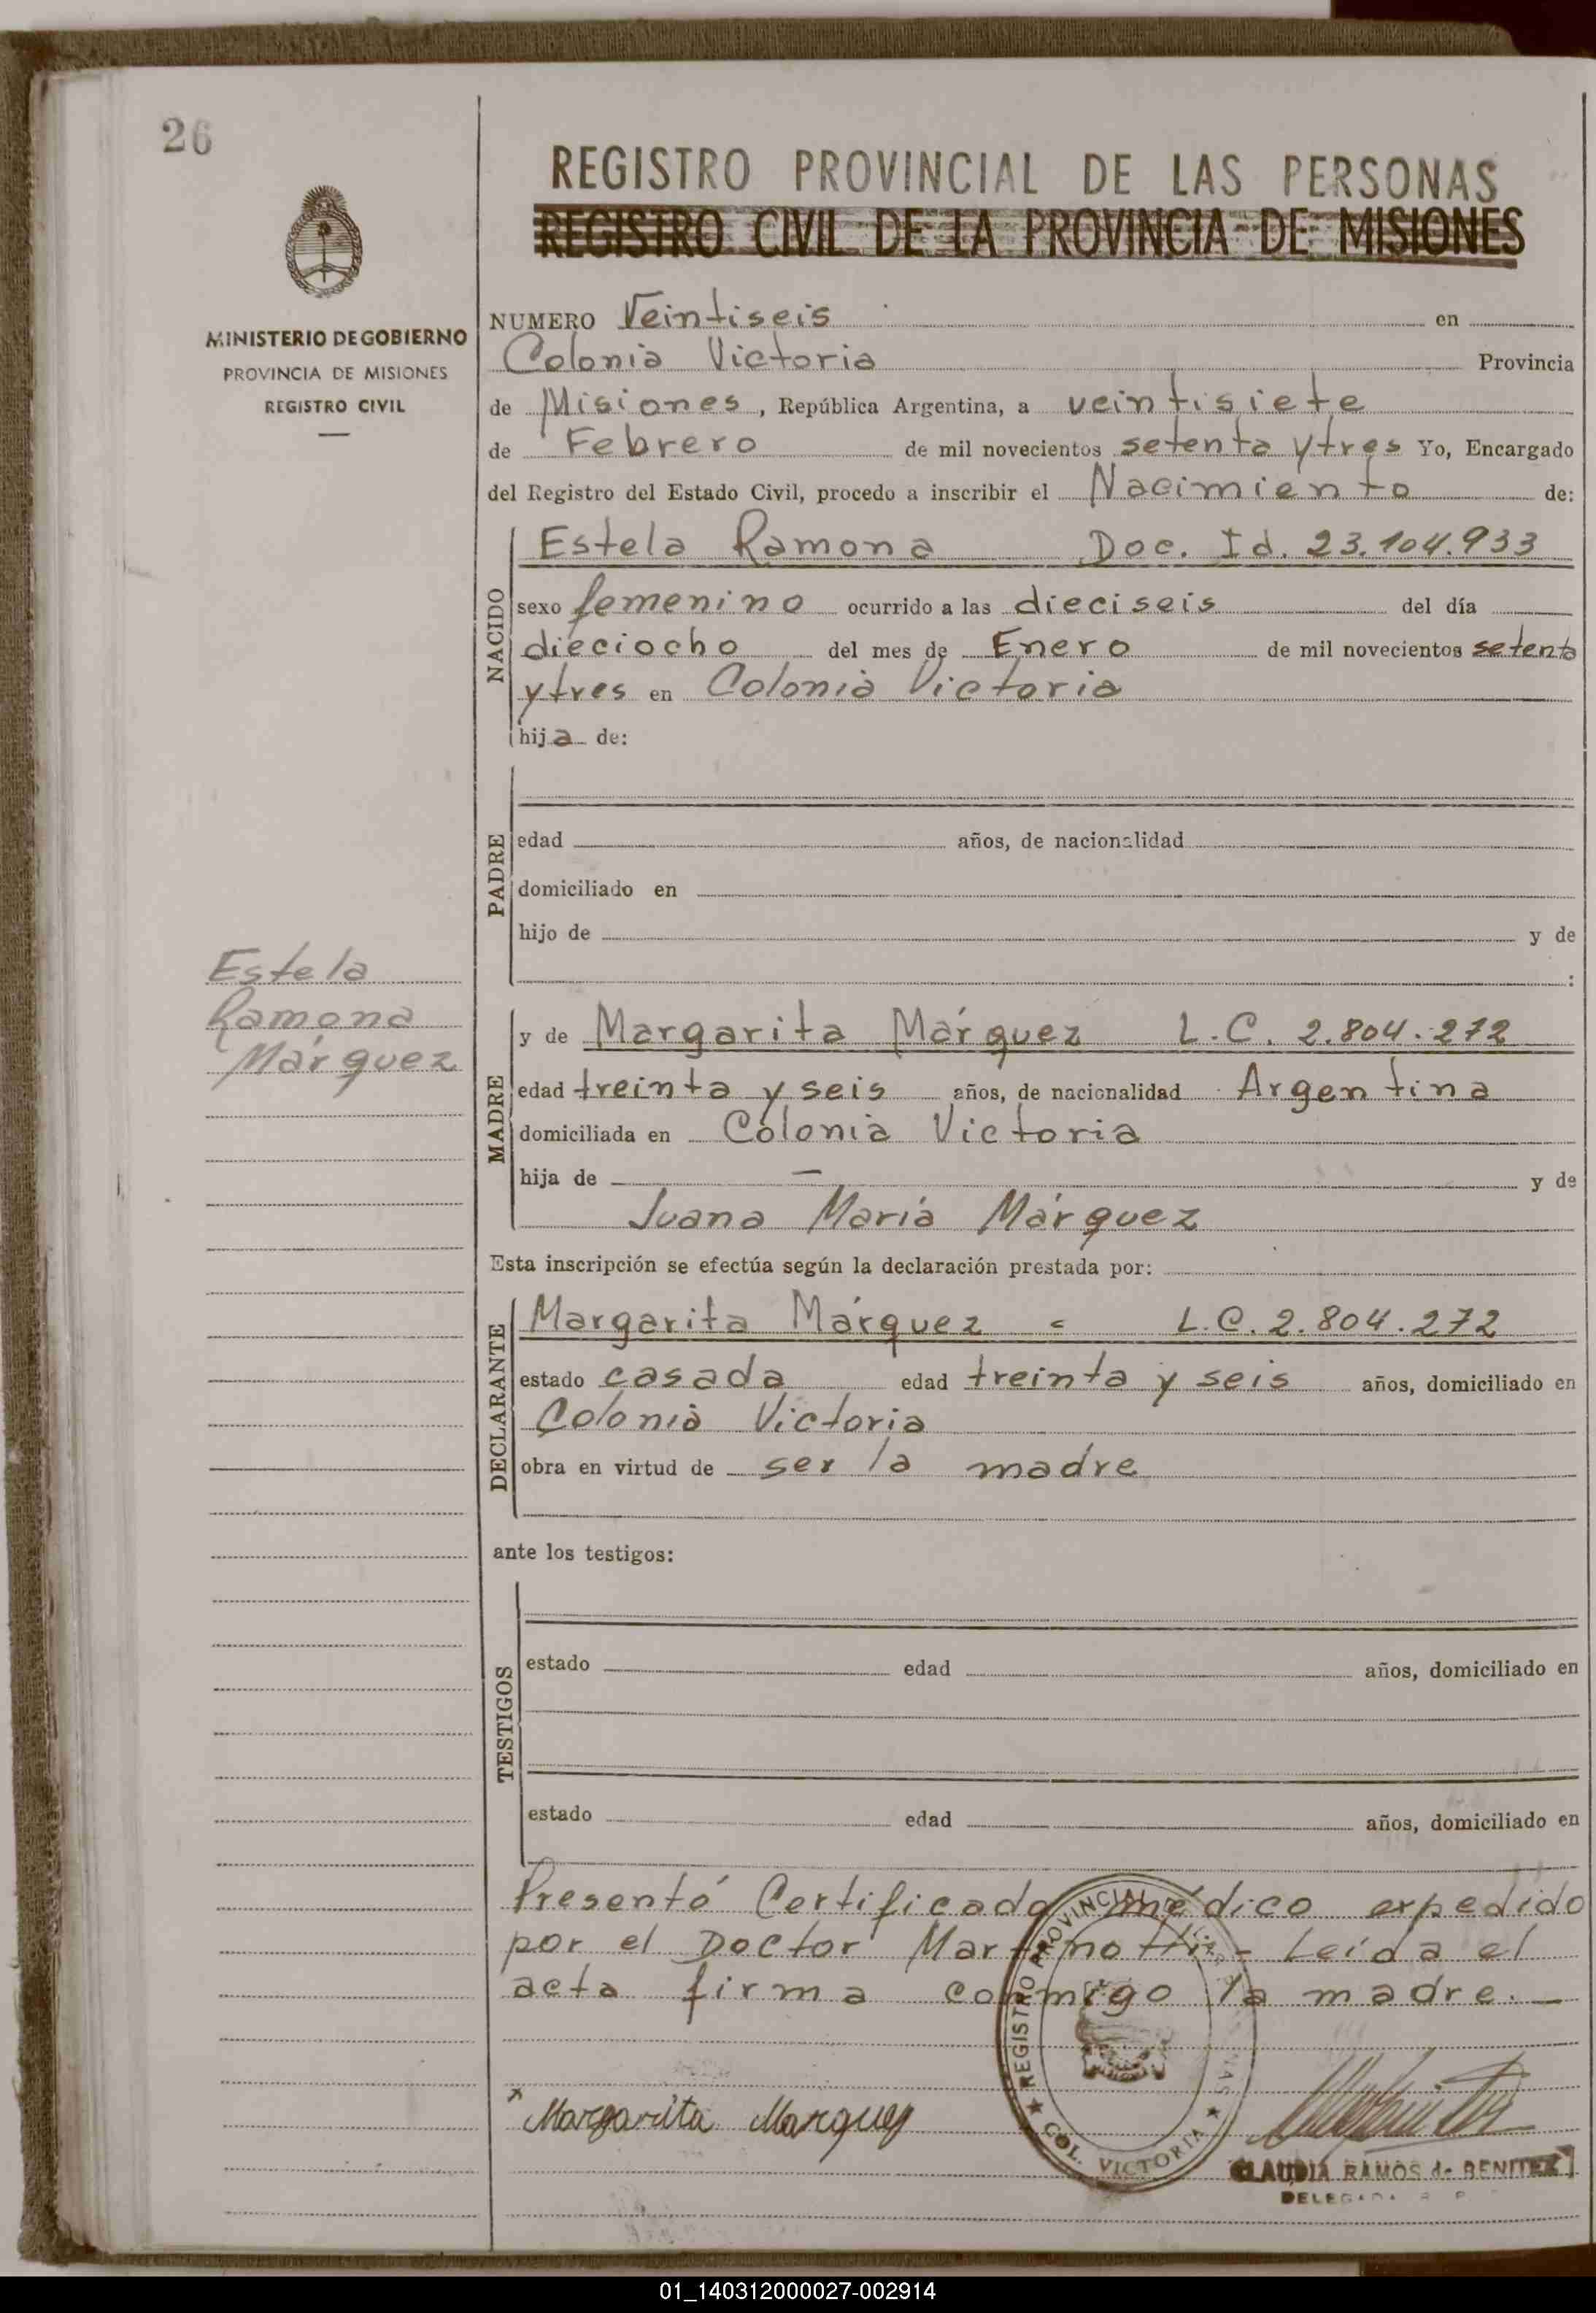 26
REGISTRO PROVINCIAL DE LAS PERSONAS
REGISTRO CIVIL DE LA PROVINCIA DE MISIONES
MINISTERIO DE GOBIERNO
PROVINCIA DE MISIONES
REGISTRO CIVIL
NUMERO Veintiseis en
Colonia Victoria Provincia
de Misiones, República Argentina, a veintisiete
de Febrero de mil novecientos setenta y tres Yo, Encargado
del Registro del Estado Civil, procedo a inscribir el Nacimiento de:
NACIDO
Estela Ramona Doc. Id. 23.104.933
sexo femenino ocurrido a las dieciseis del día
dieciocho del mes de Enero de mil novecientos setenta
y tres en Colonia Victoria
hija de:
PADRE
edad años, de nacionalidad
domiciliado en
hijo de y de
:
Estela
Ramona
Márquez
MADRE
y de Margarita Márquez L.C. 2.804.272
edad treinta y seis años, de nacionalidad Argentina
domiciliada en Colonia Victoria
hija de — y de
Juana María Márquez
Esta inscripción se efectúa según la declaración prestada por:
DECLARANTE
Margarita Márquez = L.C. 2.804.272
estado casada edad treinta y seis años, domiciliado en
Colonia Victoria
obra en virtud de ser la madre
ante los testigos:
TESTIGOS
estado edad años, domiciliado en
estado edad años, domiciliado en
Presentó Certificado médico expedido
por el Doctor Martinotti.- Leída el
acta firma conmigo la madre.—
REGISTRO PROVINCIAL
COL. VICTORIA
Margarita Marquez
CLAUDIA RAMOS de BENITEZ
DELEGADA
01_140312000027-002914